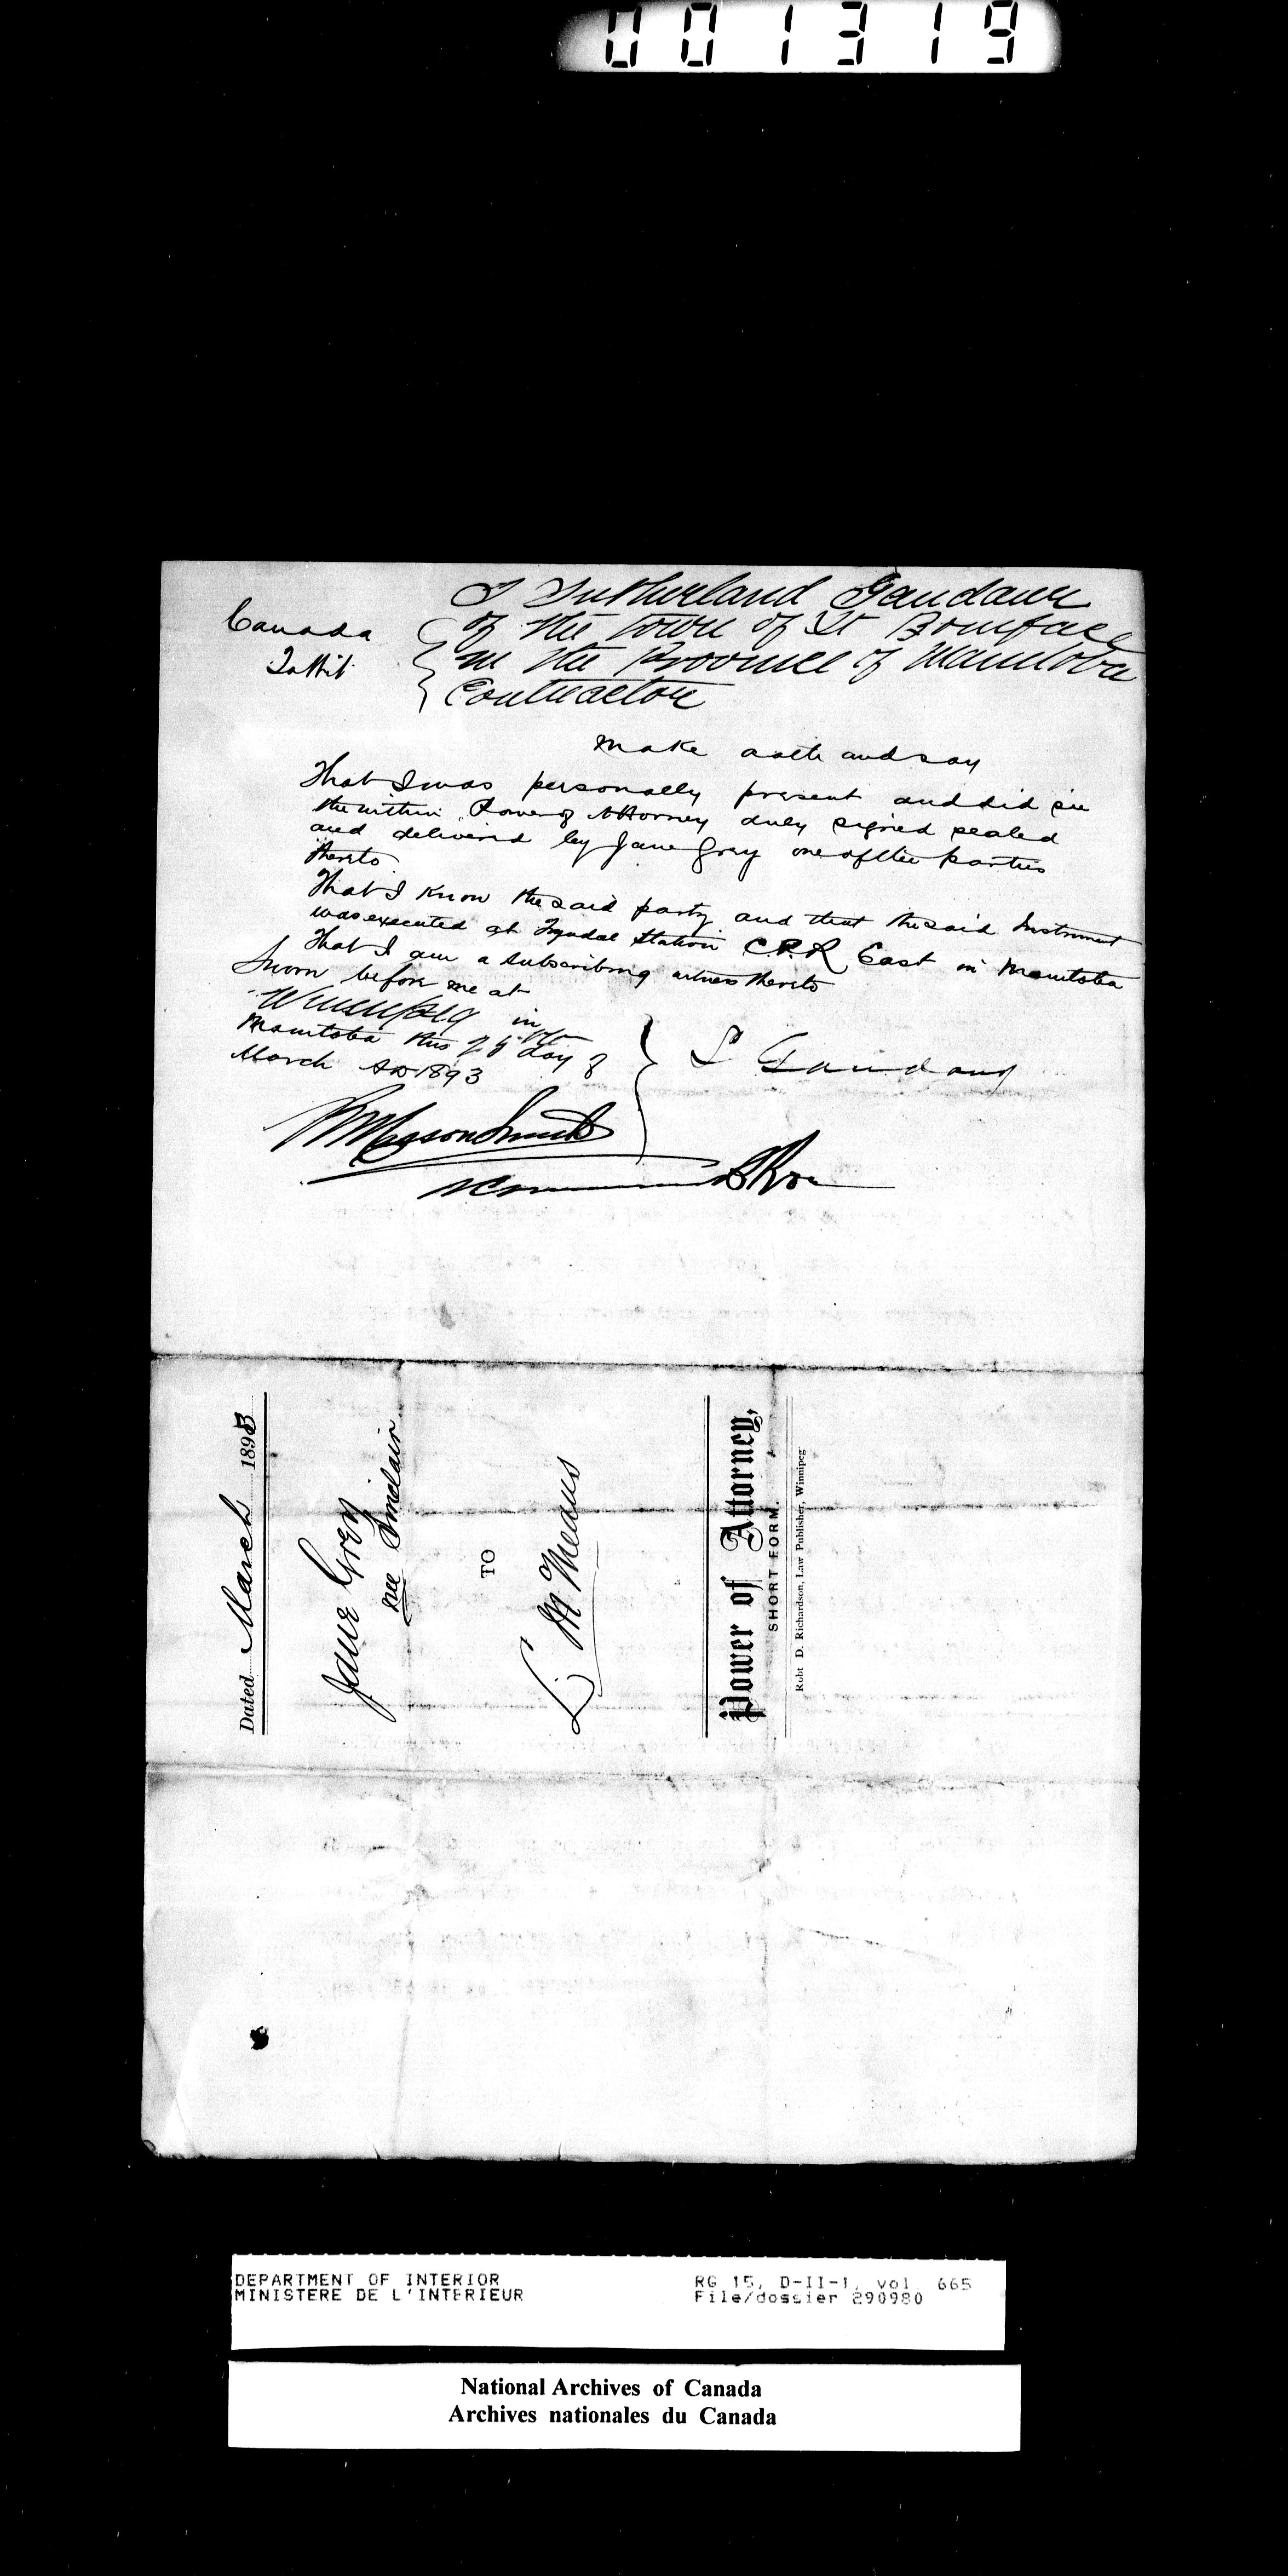 001319
I Sutherland Gaudaur
Canada of the Town of St Boniface
To Wit in the Province of Manitoba
Contractor
make oath and say
That I was personally present and did see
the within Power of Attorney duly signed sealed
and delivered by Jane Grey one of the parties
thereto
That I know the said party and that the said Instrument
was executed at Tyndal Station C.P.R East in Manitoba
That I am a subscribing witness thereto
Sworn before me at
Winnipeg in
Manitoba this 25th day of
March AD 1893
S Gaudaur
Dated March 1893
Jane Grey
nee Sinclair
TO
L McMeans
Power of Attorney,
SHORT FORM.
Robt D. Richardson, Law Publisher, Winnipeg
DEPARTMENT OF INTERIOR RG 15, D-II-1, vol 665
MINISTERE DE L'INTERIEUR File/dossier 290980
National Archives of Canada
Archives nationales du Canada